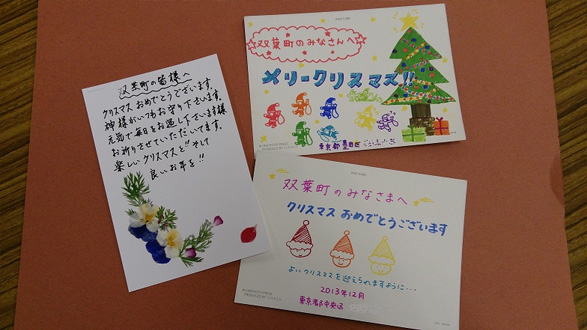 双葉町の皆様へ
クリスマスおめでとうございます。
神様がいつもお守り下さいます。
元気で毎日をお過し下さいます様
お祈りさせていただいてます。
楽しいクリスマスと そして
良いお年を!!
双葉町のみなさんへ
メリークリスマス!!
東京都墨田区
双葉町のみなさまへ
クリスマス おめでとうございます
よいクリスマスを迎えられますように…
2013年12月
東京都中央区